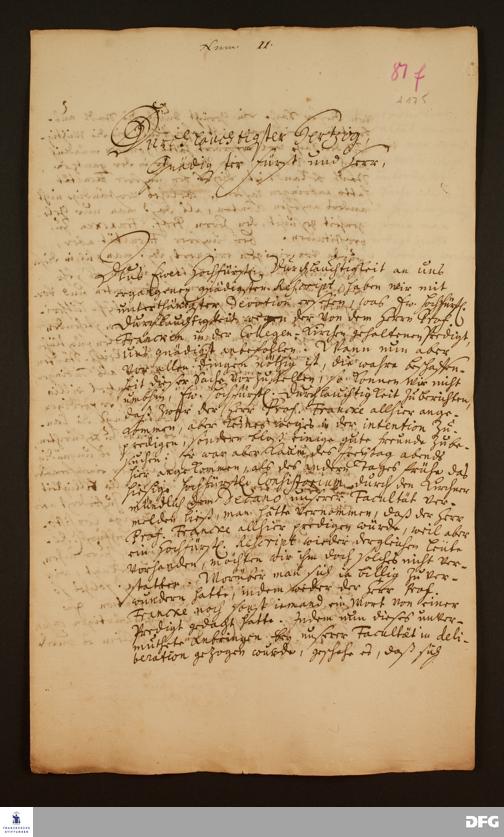 Num. 11.
87 f
5
Durchlauchtigster Hertzog
Gnädigster Fürst und Herr,
Aus Ewer Hochfürstl. Durchlauchtigkeit an uns
ergangenen gnädigsten Rescript haben wir mit
unterthänigster Devotion ersehen, was Ew. Hochfürstl.
Durchlauchtigkeit wegen der von dem Herrn Prof.
Francken in der Collegen-Kirchen gehaltenen Predigt,
uns gnädigst anbefohlen. Wann nun aber
vor allen dingen nöthig ist, die wahre beschaffen-
heit dieser Sache vorzustellen, so können wir nicht
umbhin, Ew. Hochfürstl. Durchlauchtigkeit zu berichten,
daß zwar der Herr Prof. Francke allhier ange-
kommen, aber keines weges in der intention zu
predigen, sondern bloß einige gute freunde zu be-
suchen. Er war aber kaum des Freytag abends
hier angekommen, als des andern Tages frühe das
hiesige Hochfürstl. Consistorium durch den Kirchner
mündlich dem Decano unserer Facultät ver-
melden ließ, man hätte vernommen, daß der Herr
Prof. Francke allhier predigen würde, weil aber
ein Hochfürstl. Rescript wieder dergleichen leute
vorhanden, möchten wir ihm doch solches nicht ver-
statten. Worüber man sich billig zu ver-
wundern hatte, indem weder der Herr Prof.
Francke noch sonst iemand ein Wort von seiner
Predigt gedacht hatte. Indem nun dieses unver-
muthete Anbringen bey unserer Facultät in deli-
beration gezogen wurde, geschahe es, daß sich
FRANCKESCHE STIFTUNGEN
DFG